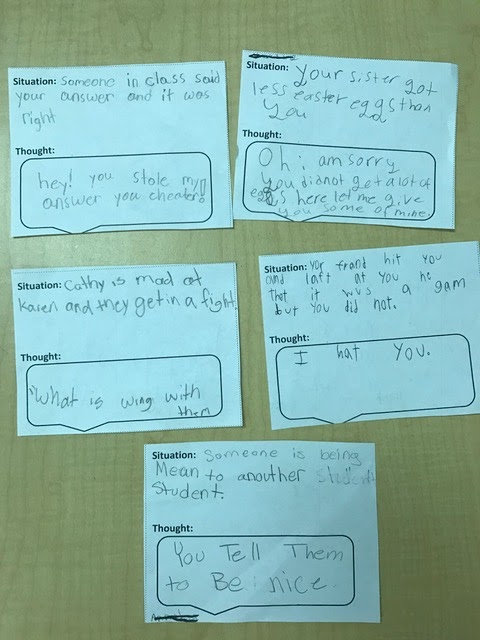 Situation: Someone in class said
your answer and it was
right
Thought:
hey! you stole my
answer you cheater!
Situation: Your sister got
less easter eggs than
you
Thought:
Oh i am sorry
you did not get a lot of
eggs here let me give
you some of mine.
Situation: Cathy is mad at
Karen and they get in a fight.
Thought:
What is wing with
them
Situation: your frand hit you
and laft at you he
thot it wus a gam
but you did not.
Thought:
I hat you.
Situation: Someone is being
Mean to anouther student
student.
Thought:
You Tell Them
to Be nice